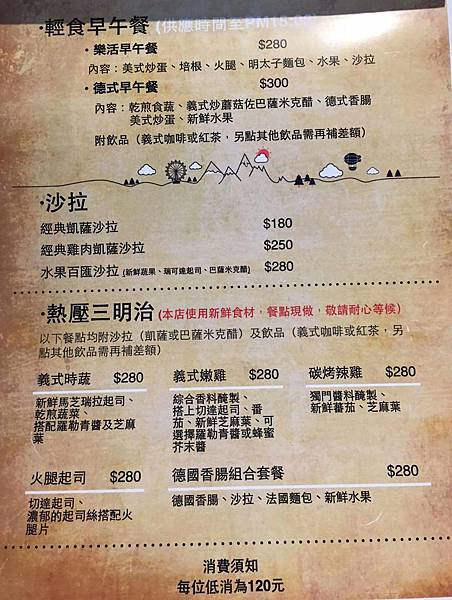 ·輕食早午餐 (供應時間至PM15:00)
·樂活早午餐 $280
內容：美式炒蛋、培根、火腿、明太子麵包、水果、沙拉
·德式早午餐 $300
內容：乾煎食蔬、義式炒蘑菇佐巴薩米克醋、德式香腸
美式炒蛋、新鮮水果
附飲品（義式咖啡或紅茶，另點其他飲品需再補差額）
·沙拉
經典凱薩沙拉 $180
經典雞肉凱薩沙拉 $250
水果百匯沙拉 (新鮮蔬果、瑞可達起司、巴薩米克醋) $280
·熱壓三明治 (本店使用新鮮食材，餐點現做，敬請耐心等候)
以下餐點均附沙拉（凱薩或巴薩米克醋）及飲品（義式咖啡或紅茶，另
點其他飲品需再補差額）
義式時蔬 $280
新鮮馬芝瑞拉起司、
乾煎蔬菜、
搭配羅勒青醬及芝麻
葉
義式嫩雞 $280
綜合香料醃製、
搭上切達起司、番
茄、新鮮芝麻葉、可
選擇羅勒青醬或蜂蜜
芥末醬
碳烤辣雞 $280
獨門醬料醃製、
新鮮蕃茄、芝麻葉
火腿起司 $280
切達起司、
濃郁的起司絲搭配火
腿片
德國香腸組合套餐 $280
德國香腸、沙拉、法國麵包、新鮮水果
消費須知
每位低消為120元